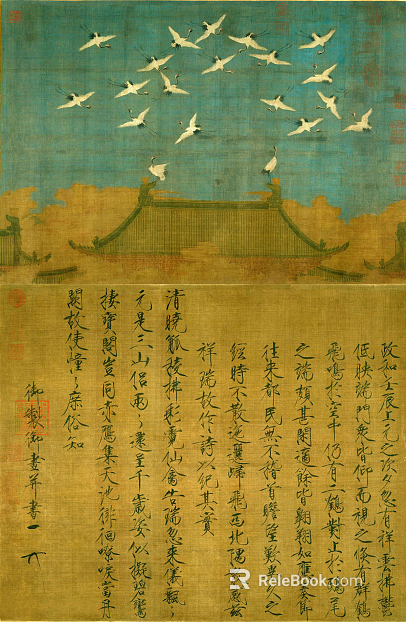 政和壬辰上元之次夕忽有祥雲拂鬱
低映端門眾皆仰而視之倏有群鶴
飛鳴於空中仍有二鶴對止於鴟尾
之端頗甚閒適餘皆翱翔如應奏節
往來都民無不稽首瞻望歎異久之
經時不散迤邐歸飛西北隅散感茲
祥瑞故作詩以紀其實
清曉觚稜拂彩霓仙禽告瑞忽來儀飄〻
元是三山侶兩〻還呈千歲姿似擬碧鸞
棲寶閣豈同赤鴈集天池徘徊嘹唳當丹
闕故使憧〻庶俗知
御製御畫并書
R
ReleBook.com